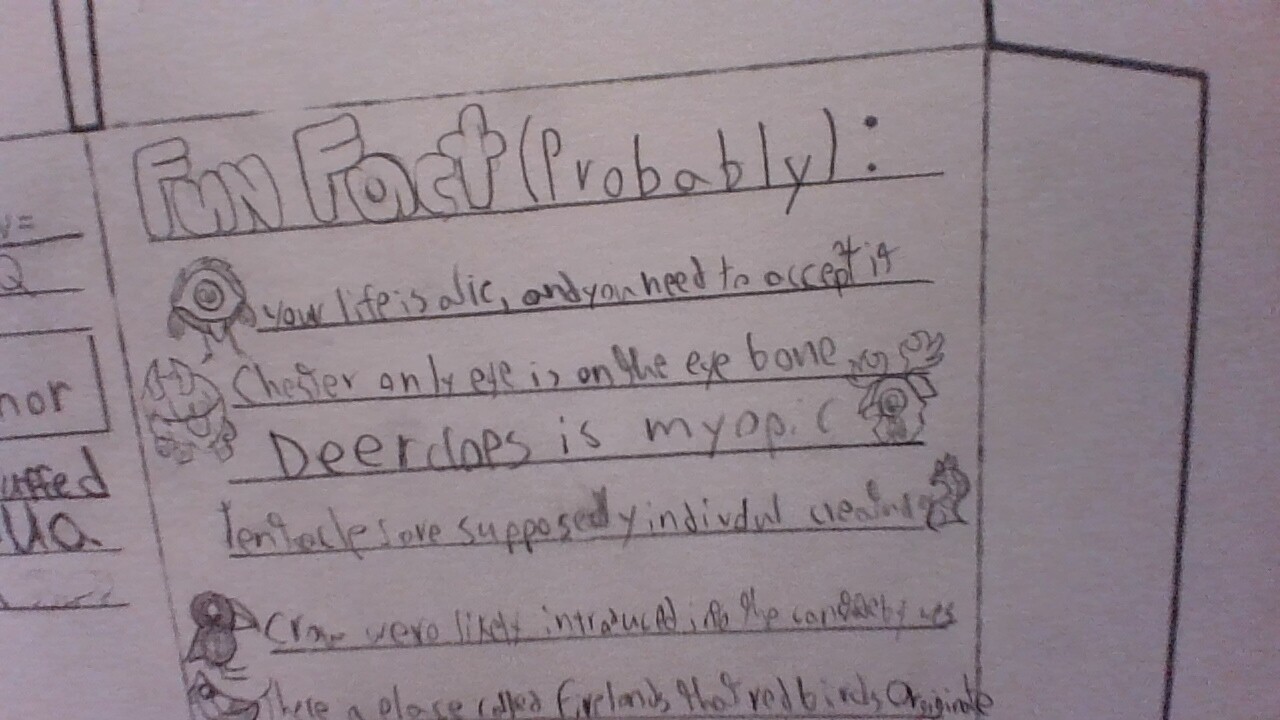 Fun Fact (Probably):
your life is a lie, and you need to accept it
Chester only eye is on the eye bone
Deerclops is myopic
Tentacles are supposedly
were likely introduced into the by
There a place called Firelands that red birds Originate
nor
uffed
ua